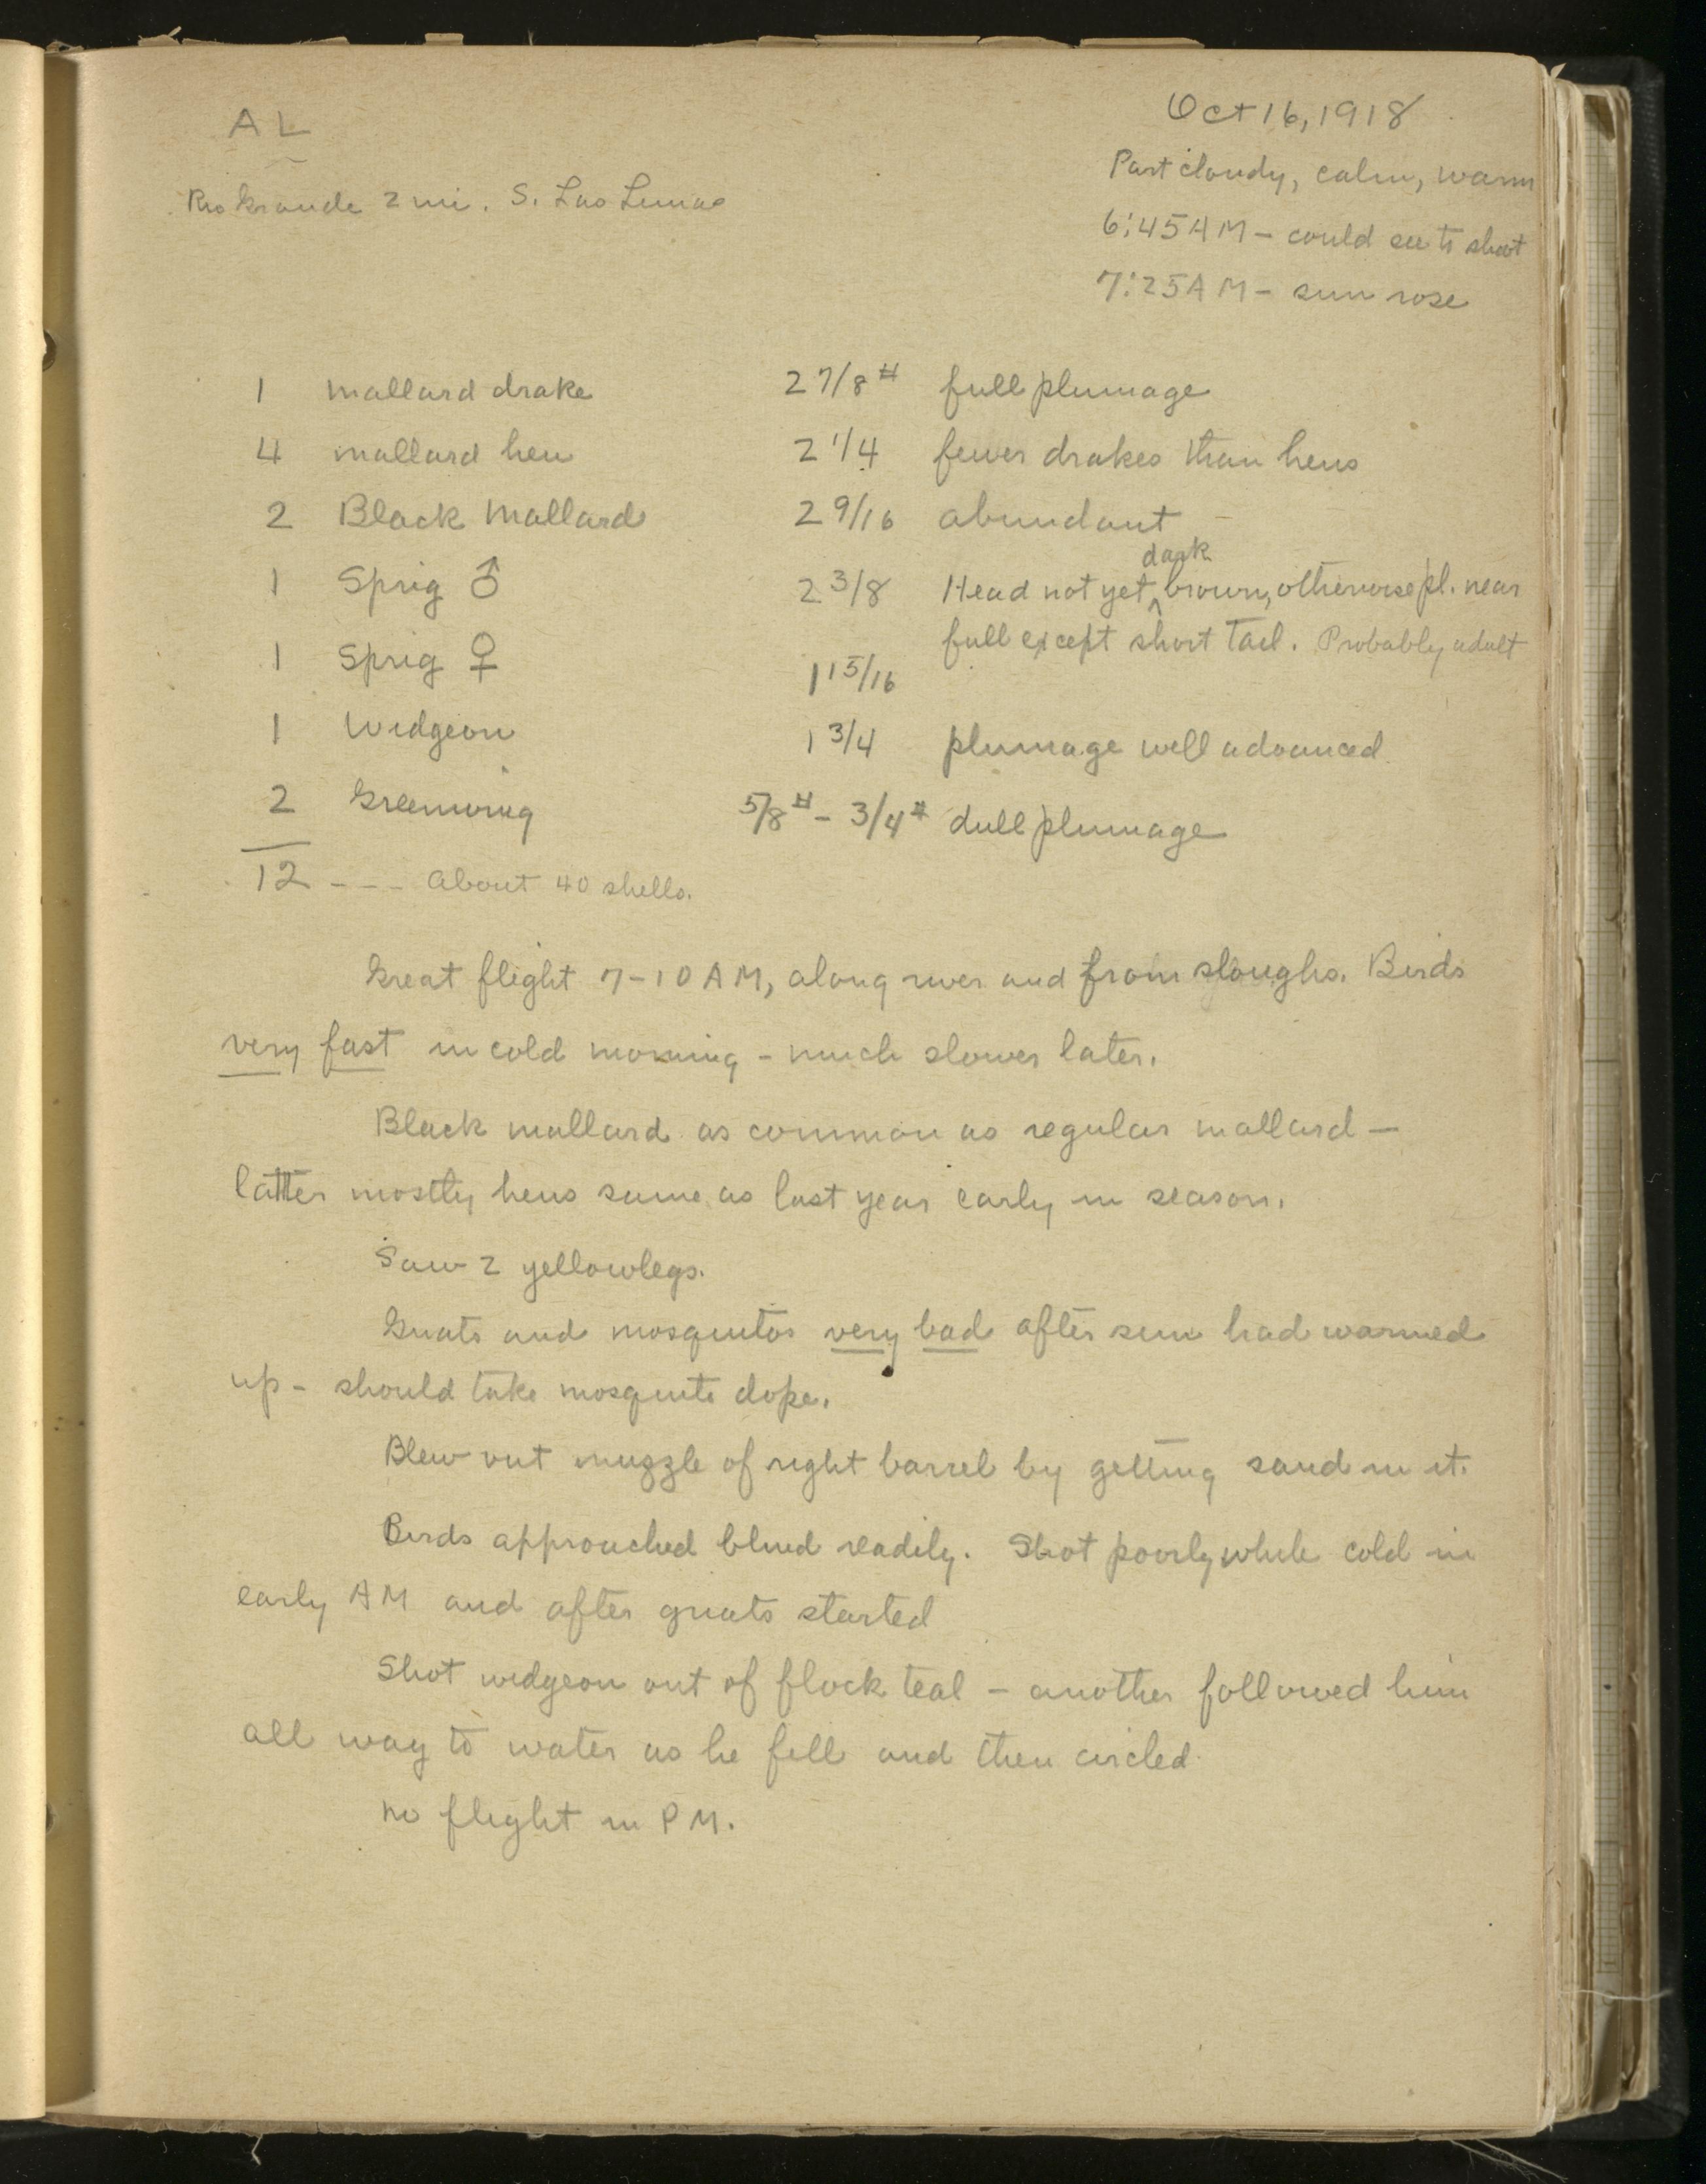 AL
Oct 16, 1918
Part cloudy, calm, warm
Rio Grande 2 mi. S. Los Lunas
6:45 AM - could see to shoot
7:25 AM - sun rose
1 mallard drake 2 7/8 # full plumage
4 mallard hen 2 1/4 fewer drakes than hens
2 Black Mallard 2 9/16 abundant
1 Sprig ♂ 2 3/8 Head not yet dark brown, otherwise pl. near
full except short tail. Probably adult
1 Sprig ♀ 1 15/16
1 Widgeon 1 3/4 plumage well advanced.
2 Greenwing 5/8 # - 3/4 # dull plumage
12 --- About 40 shells.
Great flight 7-10 AM, along river and from sloughs. Birds
very fast in cold morning - much slower later.
Black mallard as common as regular mallard —
latter mostly hens same as last year early in season.
Saw 2 yellowlegs.
Gnats and mosquitos very bad after sun had warmed
up - should take mosquito dope.
Blew out muzzle of right barrel by getting sand in it.
Birds approached blind readily. Shot poorly while cold in
early AM and after gnats started
Shot widgeon out of flock teal - another followed him
all way to water as he fell and then circled
No flight in PM.